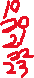 10
20
21
22
23